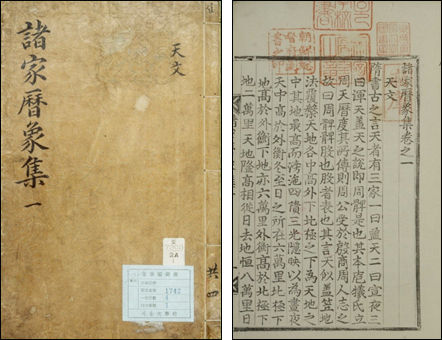 天文
諸家曆象集 一
共四
1742
諸家曆象集卷之一
天文
隋書古之言天者有三家一曰蓋天二曰宣夜三
曰渾天蓋天之說即周髀是也其本庖犧氏立
周天曆度其所傳則周公受於殷商周人志之
故曰周髀髀股也股者表也其言天似蓋笠地
法覆槃天地各中高外下北極之下爲天地之
中其地最高而滂沲四隤三光隱映以爲晝夜
天中高於外衡冬至日之所在六萬里北極下
地高於外衡下地亦六萬里外衡高於北極下
地二萬里天地隆高相從日去地恒八萬里日